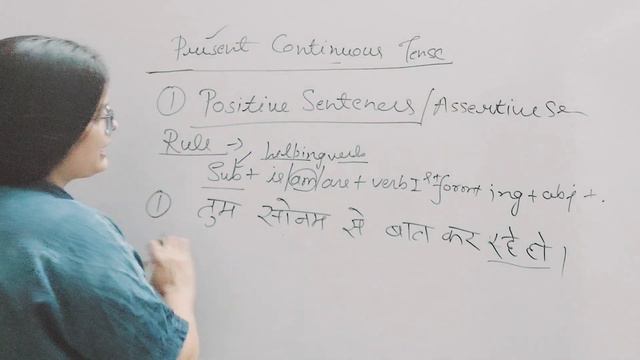 Present Continuous Tense
① Positive Senteners / Assertive Se
Rule →
helbing verb
Sub + is/am/are + verb I st form + ing + obj + .
① तुम सोनम से बात कर रहे हो।